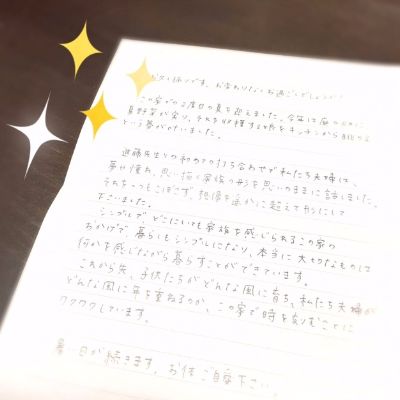 お久し振りです。お変わりなくお過ごしでしょうか?
この家での2度目の夏を迎えました。今年は庭の
夏野菜が実り、それを収穫する姿をキッチンから眺める
という夢が叶いました。
遠藤先生との初めての打ち合わせで私たち夫婦は、
夢や憧れ、思い描く家族の形を思いのままに話しました。
それを一つもこぼさず、想像を遥かに超えて形にして
下さいました。
シンプルで、どこにいても家族を感じられるこの家の
おかげで、暮らしもシンプルになり、本当に大切なものは
何かを感じながら暮らすことができています。
これから先、子供たちがどんな風に育ち、私たち夫婦が
どんな風に年を重ねるのか、この家で時を刻むことに
ワクワクしています。
暑い日が続きます。お体ご自愛下さい。